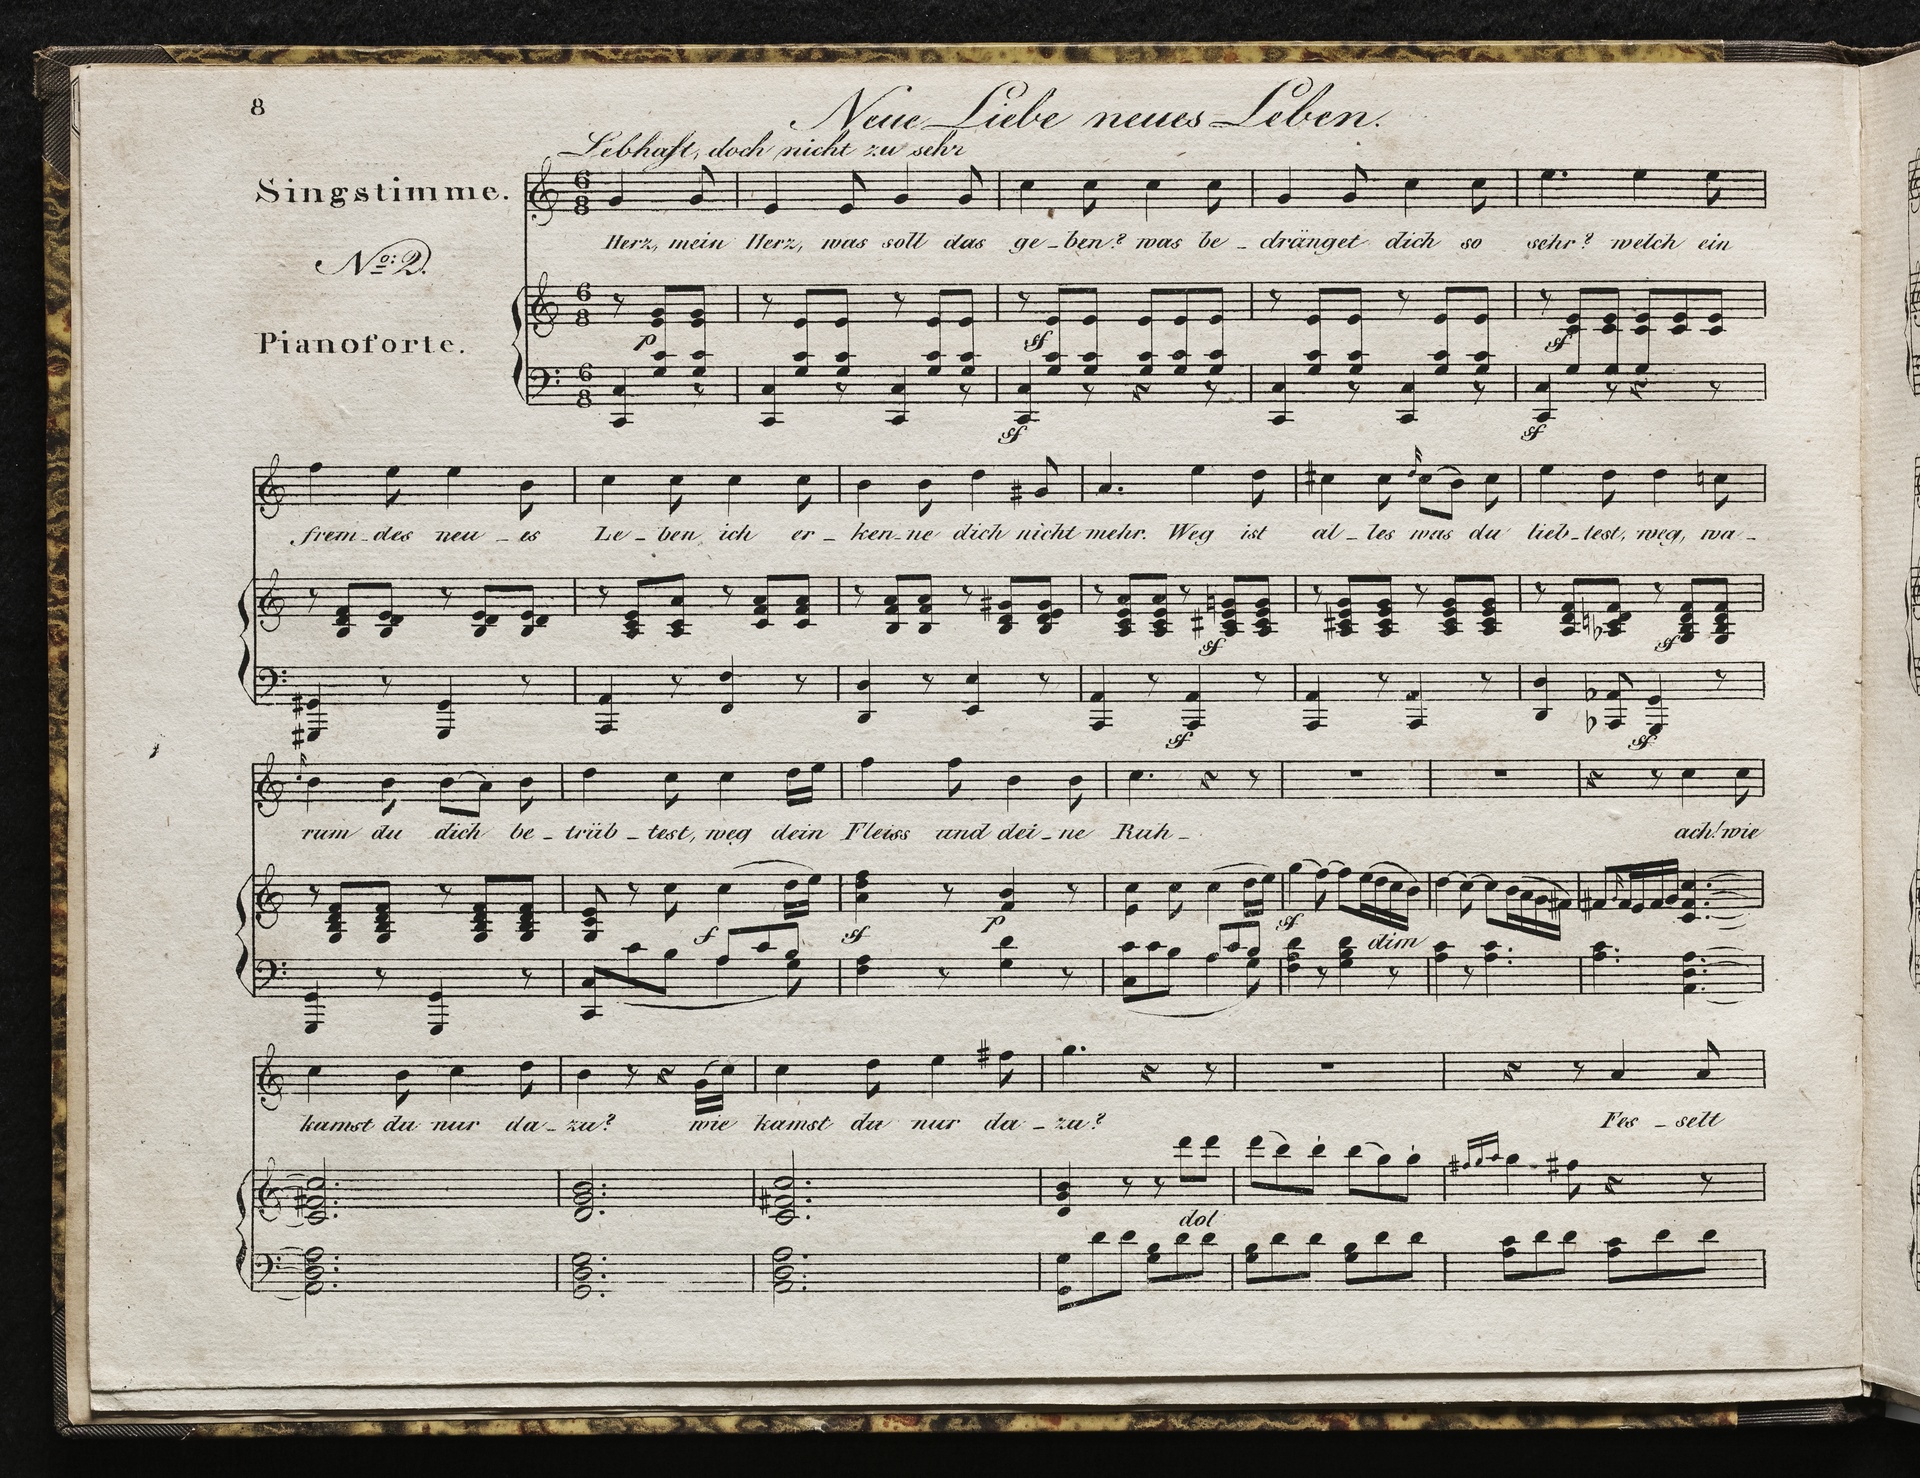 8
Neue Liebe neues Leben.
Lebhaft, doch nicht zu sehr
Singstimme.
Herz, mein Herz, was soll das ge-ben? was be-dränget dich so sehr? welch ein
No: 2.
Pianoforte.
p
sf
sf
sf
sf
frem-des neu-es Le-ben ich er-ken-ne dich nicht mehr. Weg ist al-les was du lieb-test, weg, wa-
sf
sf
sf
sf
rum du dich be-trüb-test, weg dein Fleiss und dei-ne Ruh- ach! wie
f
sf
p
sf
dim
kamst du nur da-zu? wie kamst du nur da-zu? Fes-selt
dol